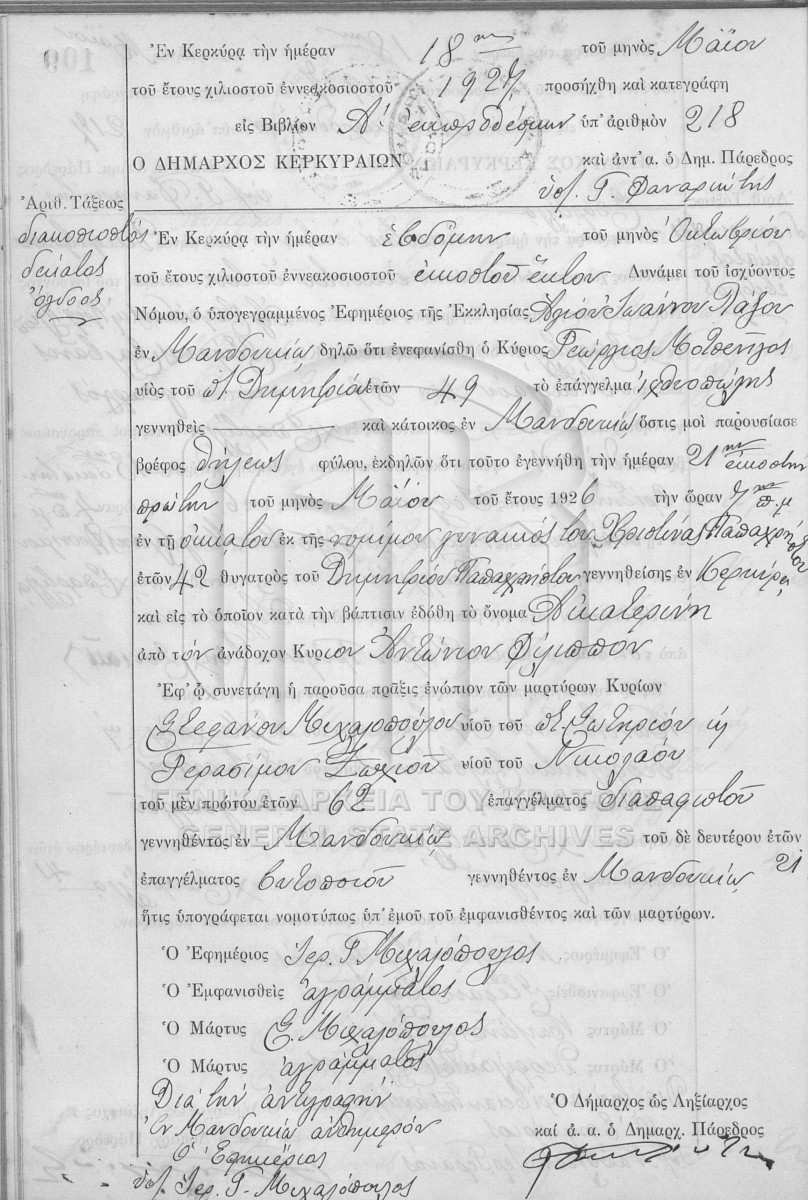 Ἐν Κερκύρᾳ τὴν ἡμέραν 18ην τοῦ μηνὸς Μαΐου
τοῦ ἔτους χιλιοστοῦ ἐννεακοσιοστοῦ 1927 προσήχθη καὶ κατεγράφη
εἰς Βιβλίον Α΄ ἐκπροθέσμων ὑπ' ἀριθμὸν 218
Ο ΔΗΜΑΡΧΟΣ ΚΕΡΚΥΡΑΙΩΝ καὶ ἀντ' α. ὁ Δημ. Πάρεδρος
ὑπ. Γ. Φαναριώτης
Ἀριθ. Τάξεως
διακοσιοστός
δέκατος
ὄγδοος
Ἐν Κερκύρᾳ τὴν ἡμέραν ἑβδόμην τοῦ μηνὸς Ὀκτωβρίου
τοῦ ἔτους χιλιοστοῦ ἐννεακοσιοστοῦ εἰκοστοῦ ἕκτου Δυνάμει τοῦ ἰσχύοντος
Νόμου, ὁ ὑπογεγραμμένος Ἐφημέριος τῆς Ἐκκλησίας Ἁγίου Ἰωάννου Λάζου
ἐν Μανδουκίῳ δηλῶ ὅτι ἐνεφανίσθη ὁ Κύριος Γεώργιος
υἱὸς τοῦ π. Δημητρίου ἐτῶν 49 τὸ ἐπάγγελμα ἰχθυοπώλης
γεννηθεὶς καὶ κάτοικος ἐν Μανδουκίῳ ὅστις μοὶ παρουσίασε
βρέφος θήλεως φύλου, ἐκδηλῶν ὅτι τοῦτο ἐγεννήθη τὴν ἡμέραν 21ην εἰκοστήν
πρώτην τοῦ μηνὸς Μαΐου τοῦ ἔτους 1926 τὴν ὥραν 7ην π.μ
ἐν τῇ οἰκίᾳ του ἐκ τῆς νομίμου γυναικός του Χριστίνας Παπαχρήστου
ἐτῶν 42 θυγατρὸς τοῦ Δημητρίου Παπαχρήστου γεννηθείσης ἐν Κερκύρᾳ
καὶ εἰς τὸ ὁποῖον κατὰ τὴν βάπτισιν ἐδόθη τὸ ὄνομα Αἰκατερίνη
ἀπὸ τόν ἀνάδοχον Κύριον Ἀντώνιον Φίλιππον
Ἐφ' ᾧ συνετάγη ἡ παροῦσα πρᾶξις ἐνώπιον τῶν μαρτύρων Κυρίων
Στεφάνου Μιχαλοπούλου υἱοῦ τοῦ π. Σωτηρίου
Γερασίμου υἱοῦ τοῦ Νικολάου
τοῦ μὲν πρώτου ἐτῶν 62 ἐπαγγέλματος
γεννηθέντος ἐν Μανδουκίῳ τοῦ δὲ δευτέρου ἐτῶν 21
ἐπαγγέλματος βυτοποιοῦ γεννηθέντος ἐν Μανδουκίῳ
ἥτις ὑπογράφεται νομοτύπως ὑπ' ἐμοῦ τοῦ ἐμφανισθέντος καὶ τῶν μαρτύρων.
Ὁ Ἐφημέριος Ἱερ. Γ. Μιχαλόπουλος
Ὁ Ἐμφανισθεὶς ἀγράμματος
Ὁ Μάρτυς Σ. Μιχαλόπουλος
Ὁ Μάρτυς ἀγράμματος
Διὰ τὴν ἀντιγραφήν
Ἐν Μανδουκίῳ αὐθημερόν
Ὁ Ἐφημέριος
ὑπ. Ἱερ. Γ. Μιχαλόπουλος
Ὁ Δήμαρχος ὡς Ληξίαρχος
καὶ ἀ. α. ὁ Δημαρχ. Πάρεδρος
ΓΕΝΙΚΑ ΑΡΧΕΙΑ ΤΟΥ ΚΡΑΤΟΥΣ
GENERAL STATE ARCHIVES